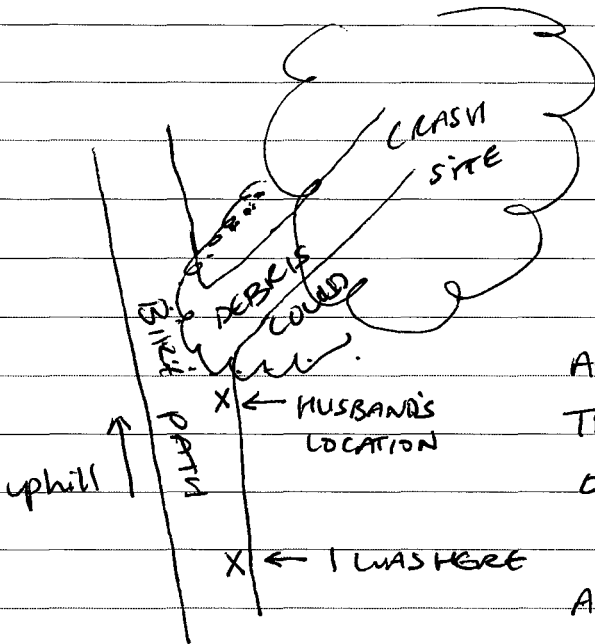 CRASH
SITE
DEBRIS
COULD
BIKE PATH
HUSBAND'S
LOCATION
uphill
I WAS HERE
A
T
A